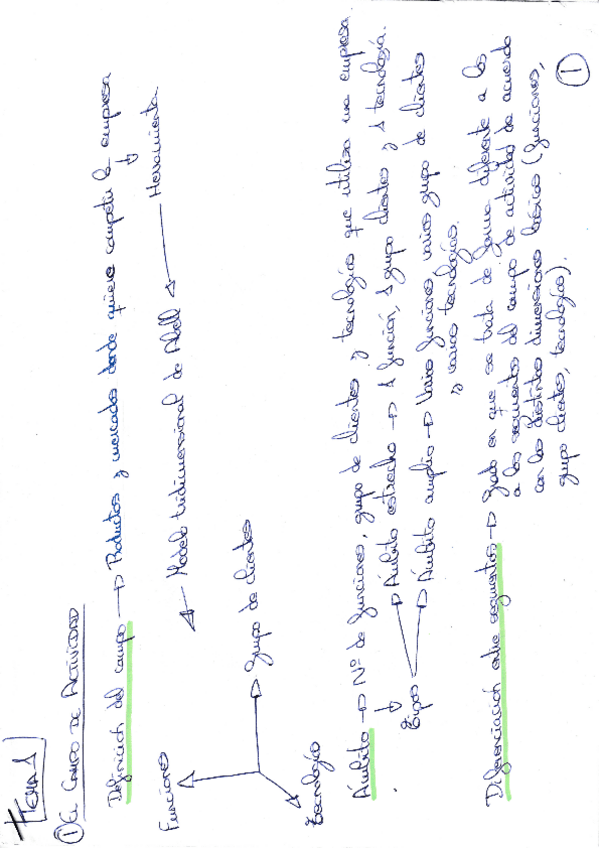 TEMA 1
① EL CAMPO DE ACTIVIDAD
Definición del campo → Productos y mercados donde quiere competir la empresa
Modelo tridimensional de Abell ← Herramienta
Funciones
Grupo de clientes
Tecnologías
Ámbito → Nº de funciones, grupo de clientes y tecnologías que utiliza una empresa
Tipos
Ámbito estrecho → 1 función, 1 grupo clientes y 1 tecnología.
Ámbito amplio → Varias funciones, varios grupo de clientes
y varias tecnologías.
Diferenciación entre segmentos → Grado en que se trata de forma diferente a los
a los segmentos del campo de actividad de acuerdo
con las distintas dimensiones básicas (funciones,
grupo clientes, tecnologías).
①